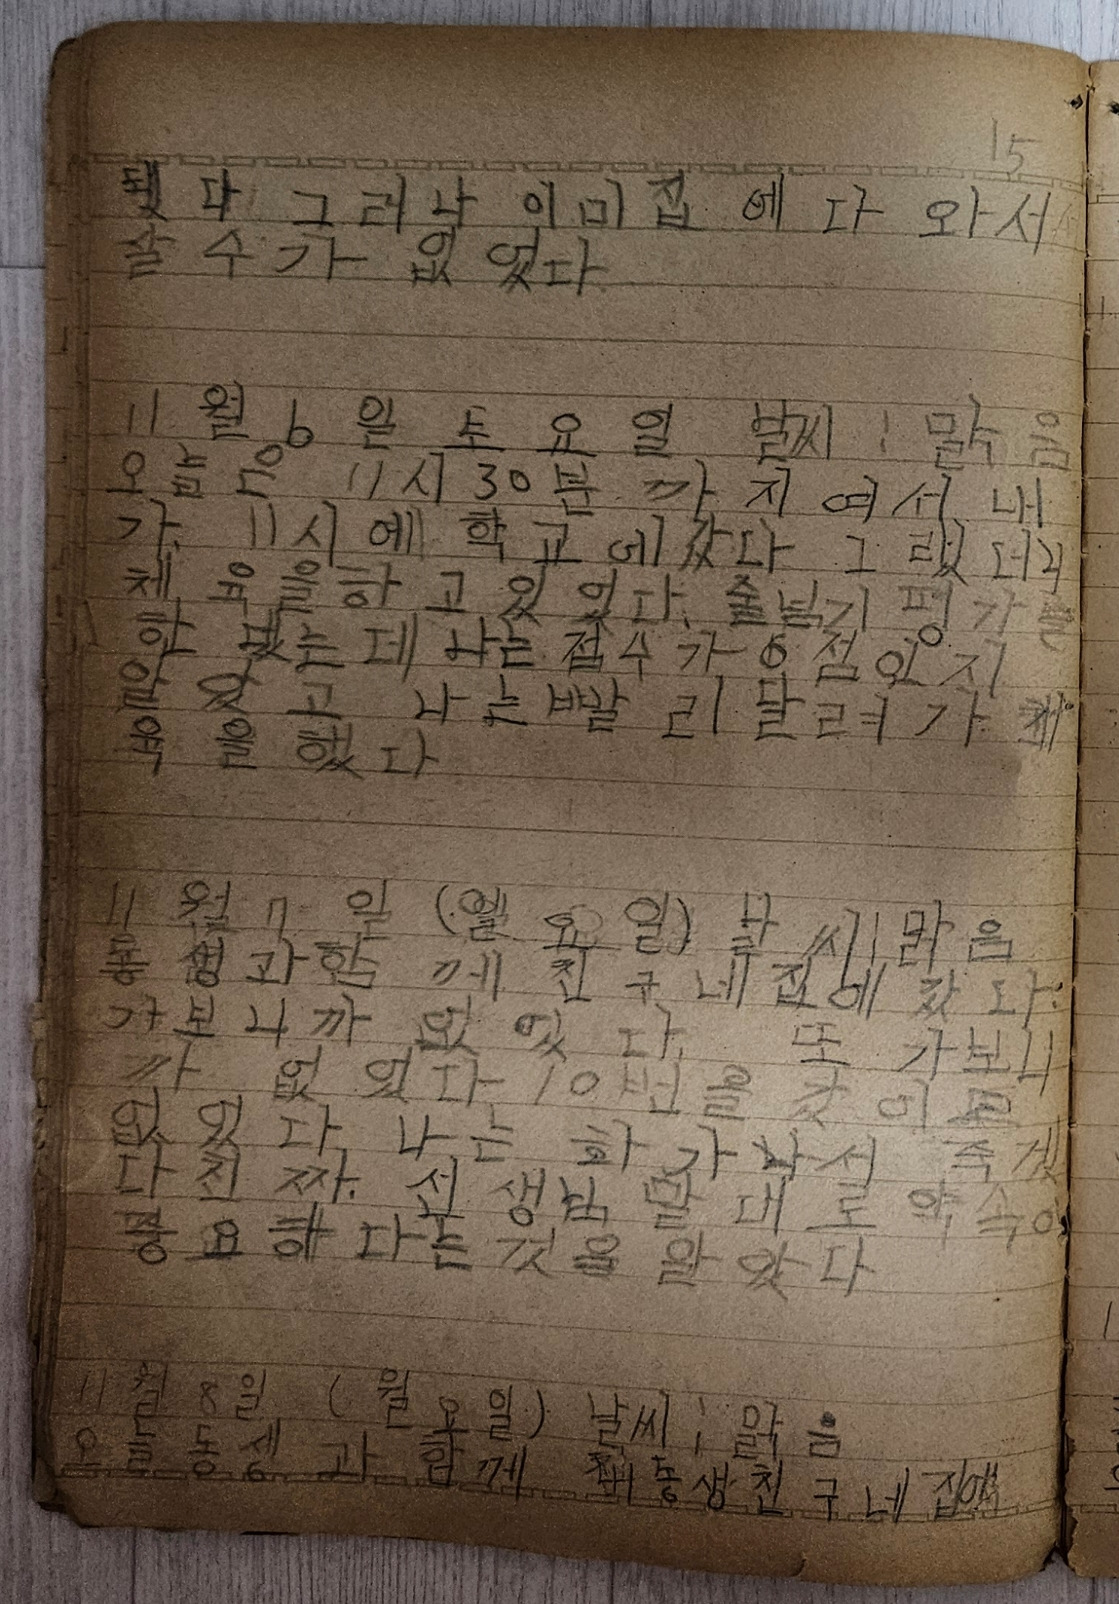 15
됐다 그러나 이미집에다 와서
살수가 없었다
11월 6일 토요일 날씨 : 맑음
오늘은 11시30분 까지여서 내
가 11시에 학교에갔다 그랬더니
체육을하고있었다. 줄넘기 평가를
하였는데 나는점수가 6점인지
알았고 나는빨리달려가 체
육을했다
11월 7일 (일요일) 날씨 : 맑음
동생과함께 친구네집에 갔다.
가보니까 없었다. 또 가보니
까 없었다 10번을 갔어도
없었다 나는 화가나서 죽겠
다 진짜. 선생님말대로 약속이
중요하다는것을 알았다
11월 8일 (월요일) 날씨 : 맑음
오늘 동생과 함께 동생친구네집에